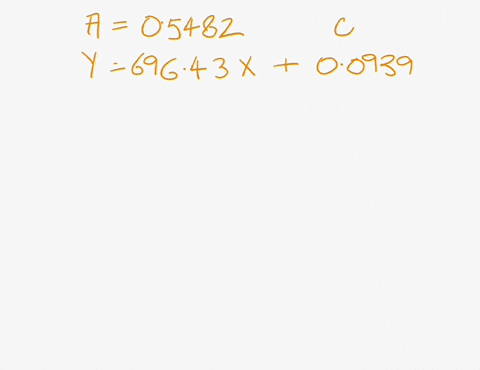 A = 0.5482 C
Y = 696.43 X + 0.0939